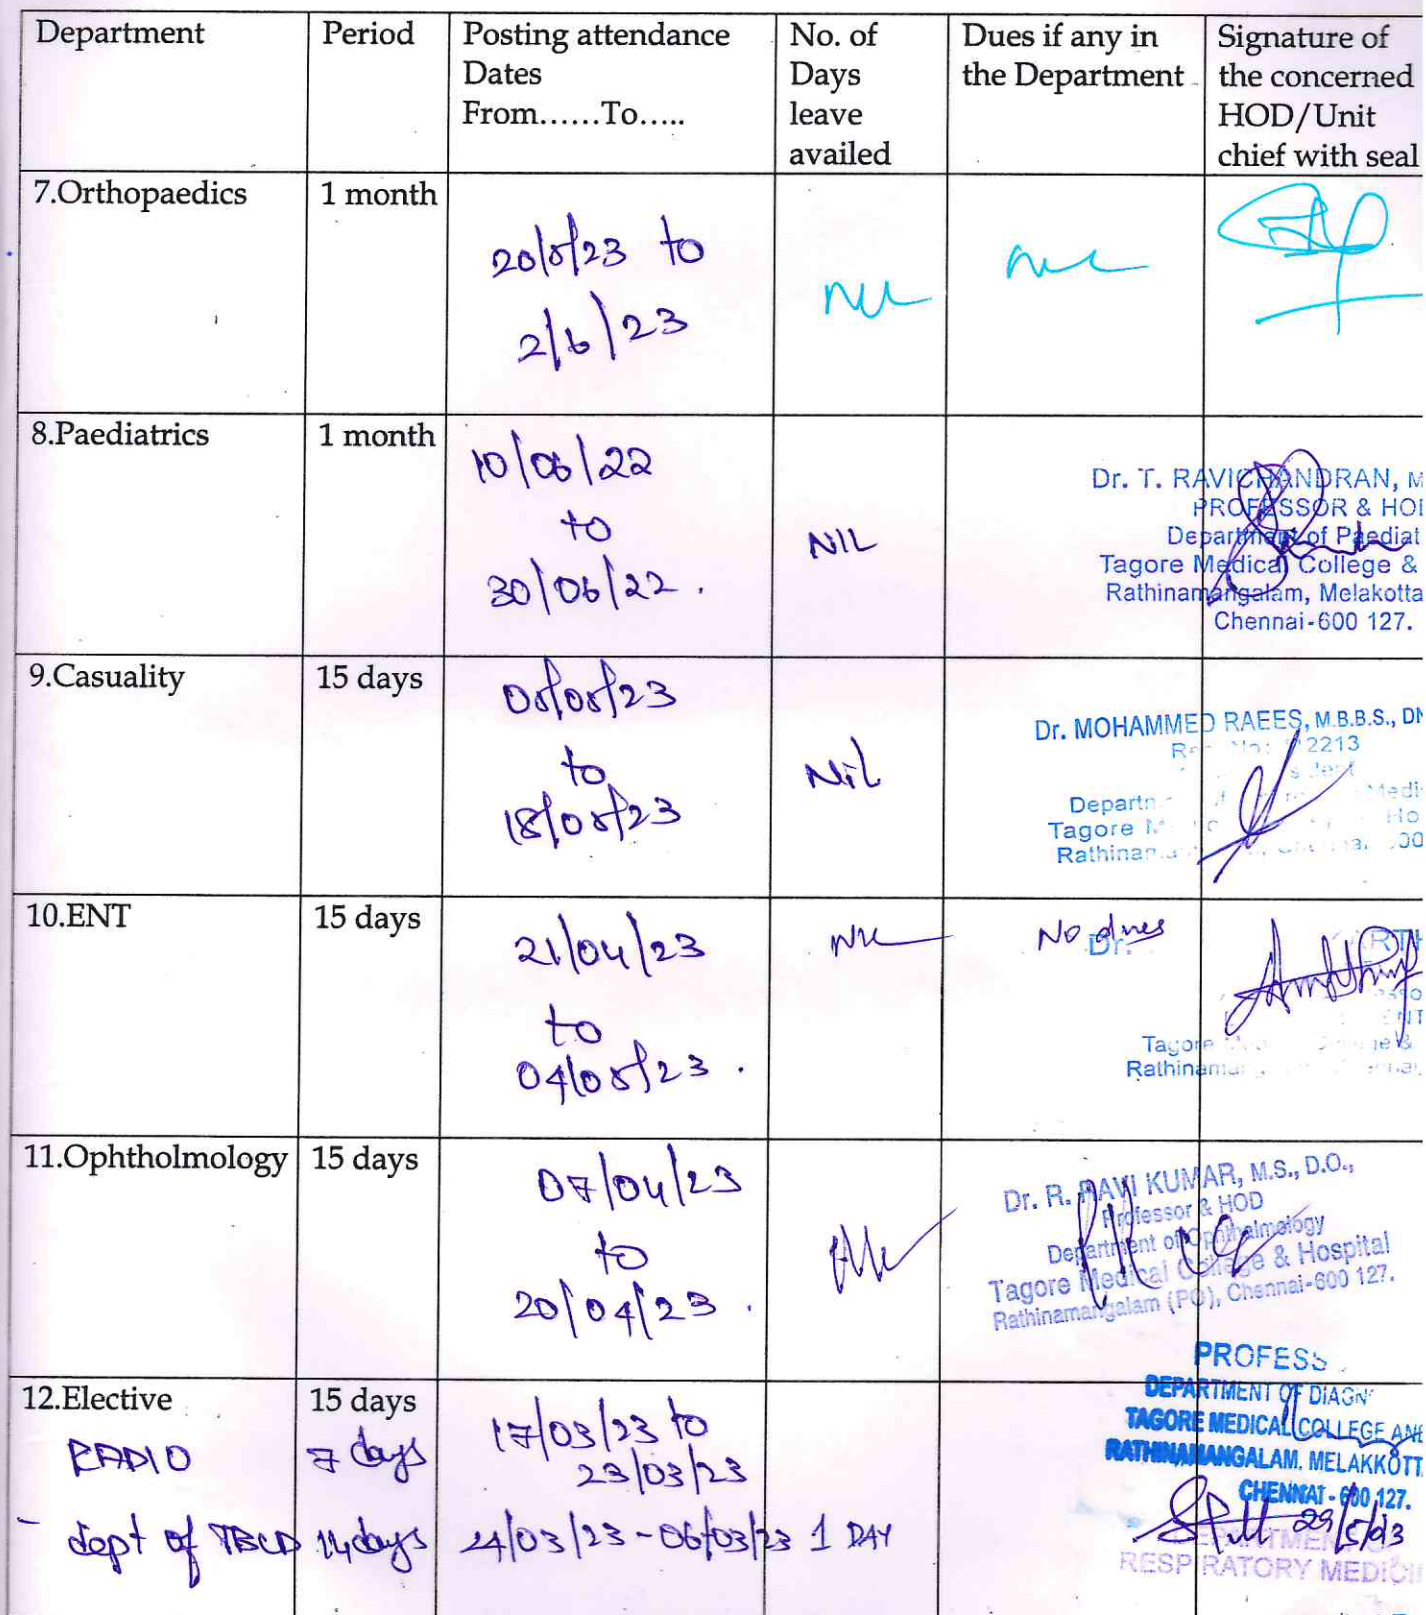 Department Period Posting attendance Dates From......To..... No. of Days leave availed Dues if any in the Department Signature of the concerned HOD/Unit chief with seal
7.Orthopaedics 1 month
20/5/23 to
2/6/23
Nil
Nil
8.Paediatrics 1 month
10/06/22
to
30/06/22.
NIL
Dr. T. RAVICHANDRAN, M
PROFESSOR & HOD
Department of Paediat
Tagore Medical College &
Rathinamangalam, Melakotta
Chennai-600 127.
9.Casuality 15 days
05/05/23
to
18/05/23
Nil
Dr. MOHAMMED RAEES, M.B.B.S., DN
2213
Departm
Tagore M
Rathinam
10.ENT 15 days
21/04/23
to
04/05/23.
Nil
No dues
Dr.
Tagore
Rathinama
11.Ophtholmology 15 days
07/04/23
to
20/04/23.
Nil
Dr. R. RAVI KUMAR, M.S., D.O.,
Professor & HOD
Department of Ophthalmology
Tagore Medical College & Hospital
Rathinamangalam (PO), Chennai-600 127.
12.Elective 15 days
RADIO 7 days 17/03/23 to
23/03/23
PROFESS
DEPARTMENT OF DIAGN
TAGORE MEDICAL COLLEGE AND
RATHINAMANGALAM. MELAKKOTT
CHENNAI - 600 127.
- dept of TBCD 14 days 24/03/23 - 06/03/23 1 DAY
29/5/23
DEPARTMENT
RESPIRATORY MEDICI